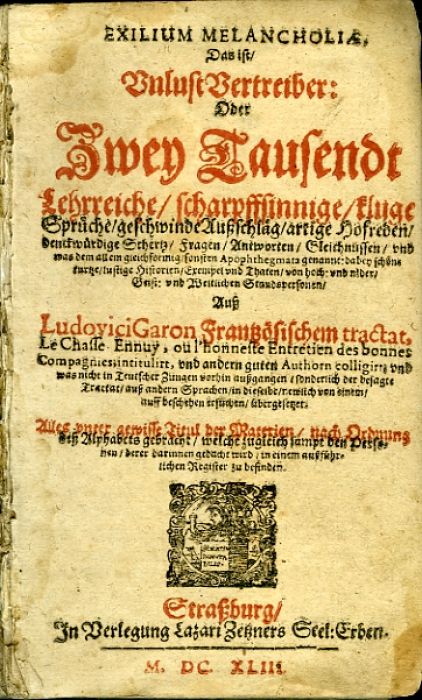 EXILIUM MELANCHOLIÆ,
Das ist/
Vnlust Vertreiber:
Oder
Zwey Tausendt
Lehrreiche/ scharpffsinnige/ kluge
Sprüche/ geschwinde Außschläg/ artige Hofreden/
denckwürdige Schertz/ Fragen/ Antworten/ Gleichnüssen/ vnd
was dem allem gleichförmig/ sonsten Apophthegmata genannt: dabey schöne
kurtze/ lustige Historien/ Exempel vnd Thaten/ von hoch: vnd nider/
Geist: vnd Weltlichen Standspersonen/
Auß
Ludovici Garon Frantzösischem tractat,
Le Chasse Ennuy, ou l'honneste Entretien des bonnes
Compagnies; intitulirt, vnd andern guten Authorn colligirt; vnd
was nicht in Teutscher Zungen vorhin außgangen/ sonderlich der besagte
Tractat/ auß andern Sprachen/ in dieselbe/ newlich von einem/
auff beschehen ersuchen/ übergesetzet.
Alles vnter gewisse Titul der Materien/ nach Ordnung
deß Alphabets gebracht/ welche zugleich sampt den Perso-
nen/ derer darinnen gedacht wird/ in einem außführ-
lichen Register zu befinden.
Straßburg/
In Verlegung Lazari Zetzners Seel: Erben.
M. DC XLIII.